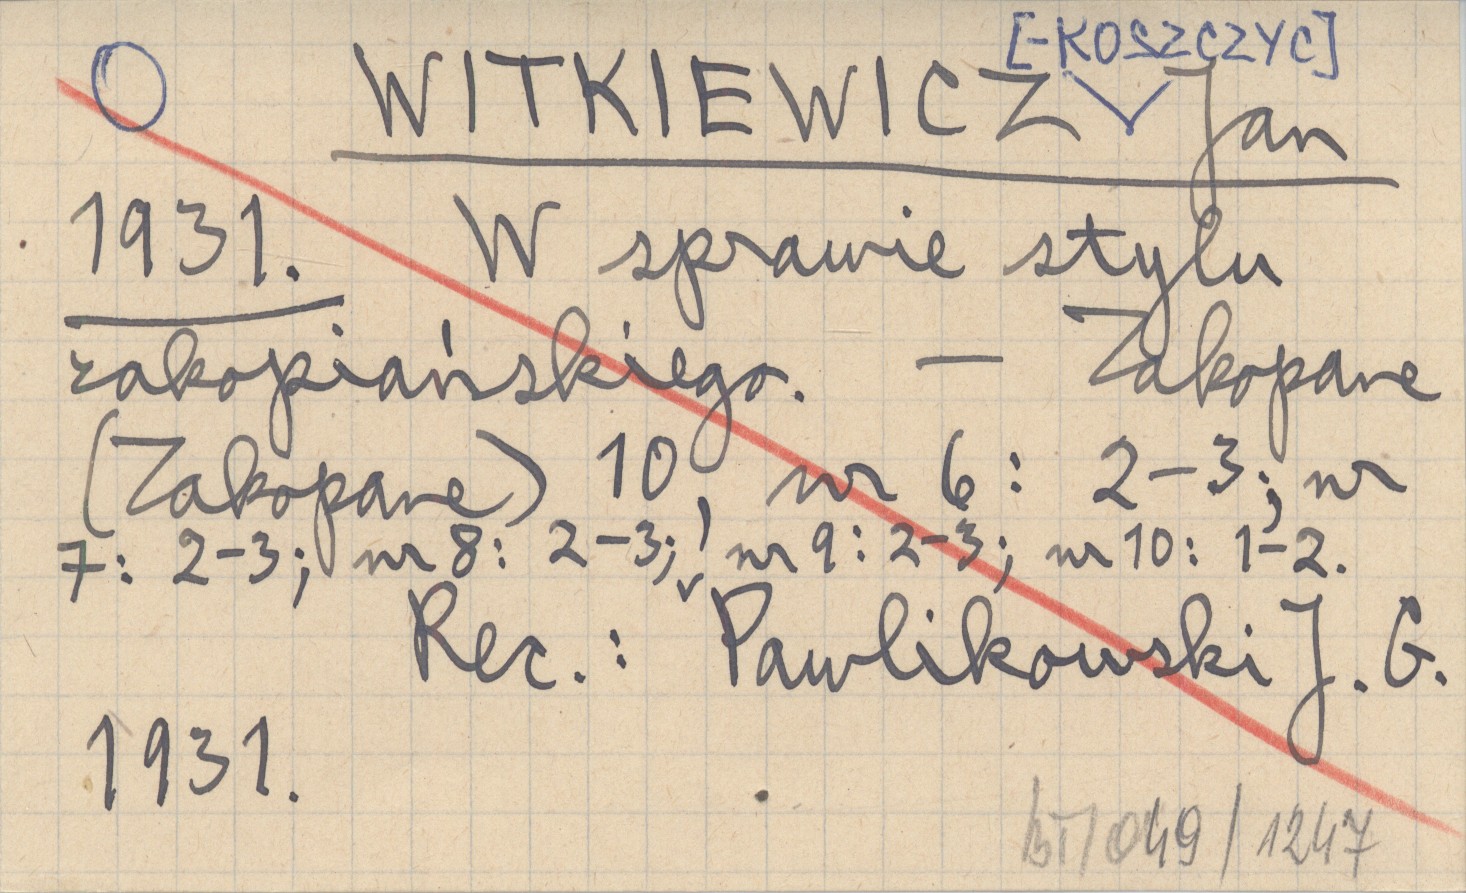 [-KOSZCZYC]
WITKIEWICZ Jan
1931. W sprawie stylu
zakopiańskiego. — Zakopane
(Zakopane) 10, nr 6: 2-3; nr
7: 2-3; nr 8: 2-3; nr 9: 2-3; nr 10: 1-2.
Rec.: Pawlikowski J. G.
1931.
BT/049/1247